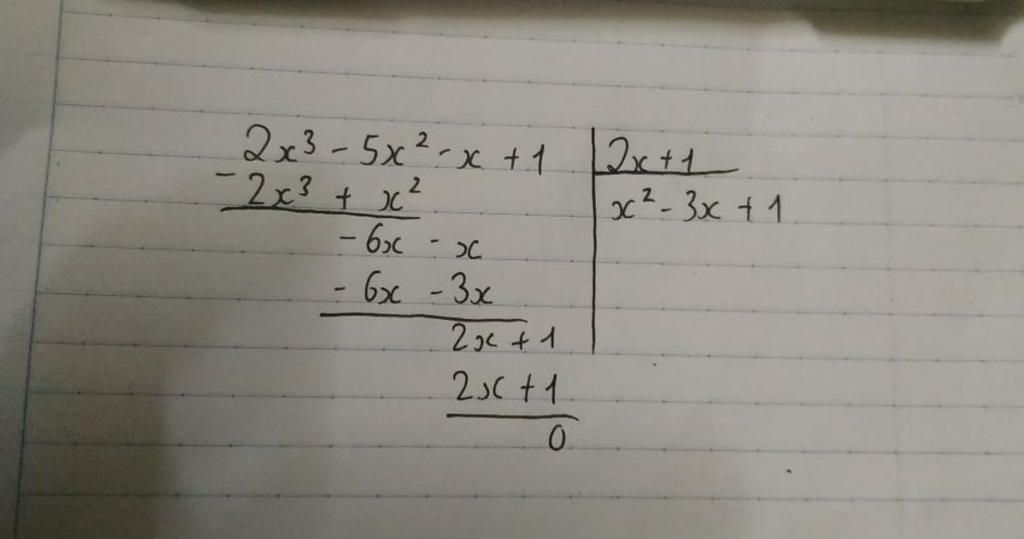 2x³ - 5x² - x + 1 | 2x + 1
- 2x³ + x² | x² - 3x + 1
- 6x - x
- 6x - 3x
2x + 1
2x + 1
0